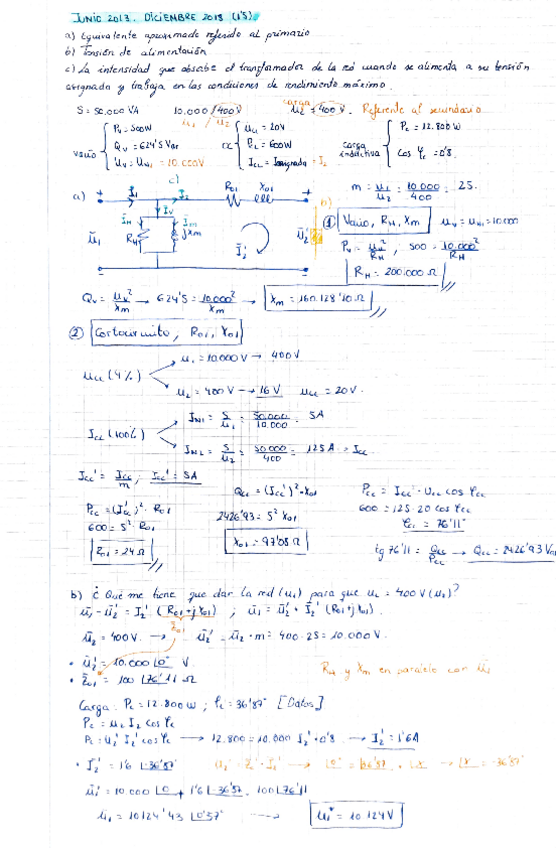 JUNIO 2013. DICIEMBRE 2018 (1'5)
a) Equivalente aproximado referido al primario
b) Tensión de alimentación
c) La intensidad que absorbe el transformador de la red cuando se alimenta a su tensión
asignada y trabaja en las condiciones de rendimiento máximo.
S = 50.000 VA 10.000/400 V carga u2 = 400 V. Referente al secundario
u1 / u2
vacío { Pv = 500W
Qv = 624'5 Var
uv = uN1 = 10.000V
cc { ucc = 20V
Pcc = 600W
Icc = Iasignada = I2
carga inductiva { Pc = 12.800 W
cos φc = 0'8
m = u1/u2 = 10.000/400 = 25.
a) I1 c) I2 R01 X01
Iv
IH Im
RH jXm
u1 I2' u2'
① Vacío, RH, Xm uv = uN1 = 10.000
Pv = uv²/RH, 500 = 10.000²/RH
RH = 200.000 Ω
Qv = uv²/Xm → 624'5 = 10.000²/Xm → Xm = 160.128'10 Ω
② Cortocircuito, R01, X01
u1 = 10.000V → 400V
ucc (4%)
u2 = 400V → 16V ucc = 20V.
IN1 = S/u1 = 50.000/10.000 = 5A
Icc (100%)
IN2 = S/u2 = 50.000/400 = 125A → Icc
Icc' = Icc/m; Icc' = 5A
Pcc = (Icc')² · R01
600 = 5² · R01
R01 = 24 Ω
Qcc = (Icc')² · X01
2426'93 = 5² X01
X01 = 97'08 Ω
Pcc = Icc · ucc cos φcc
600 = 125 · 20 cos φcc
φcc = 76'11°
tg 76'11 = Qcc/Pcc → Qcc = 2426'93 Var
b) ¿Qué me tiene que dar la red (u1) para que u2 = 400 V (u2)?
u1 - u2' = I2' (R01 + j X01) ; u1 = u2' + I2' (R01 + j X01).
Z01
u2 = 400 V. → u2' = u2 · m = 400 · 25 = 10.000 V.
• u2' = 10.000 ∠0° V.
• Z01 = 100 ∠76'11 Ω
RH y Xm en paralelo con u1
Carga: Pc = 12.800 W ; φc = 36'87° [Datos]
Pc = u2 I2 cos φc
Pc = u2' I2' cos φc → 12.800 = 10.000 I2' · 0'8 → I2' = 1'6A
• I2' = 1'6 ∠-36'87° u2' = Z' · I2' → ∠0° = ∠36'87° + ∠x → ∠x = -36'87°
u1 = 10.000 ∠0 + 1'6 ∠-36'87 · 100 ∠76'11
u1 = 10124'43 ∠0'57° → u1 = 10124V